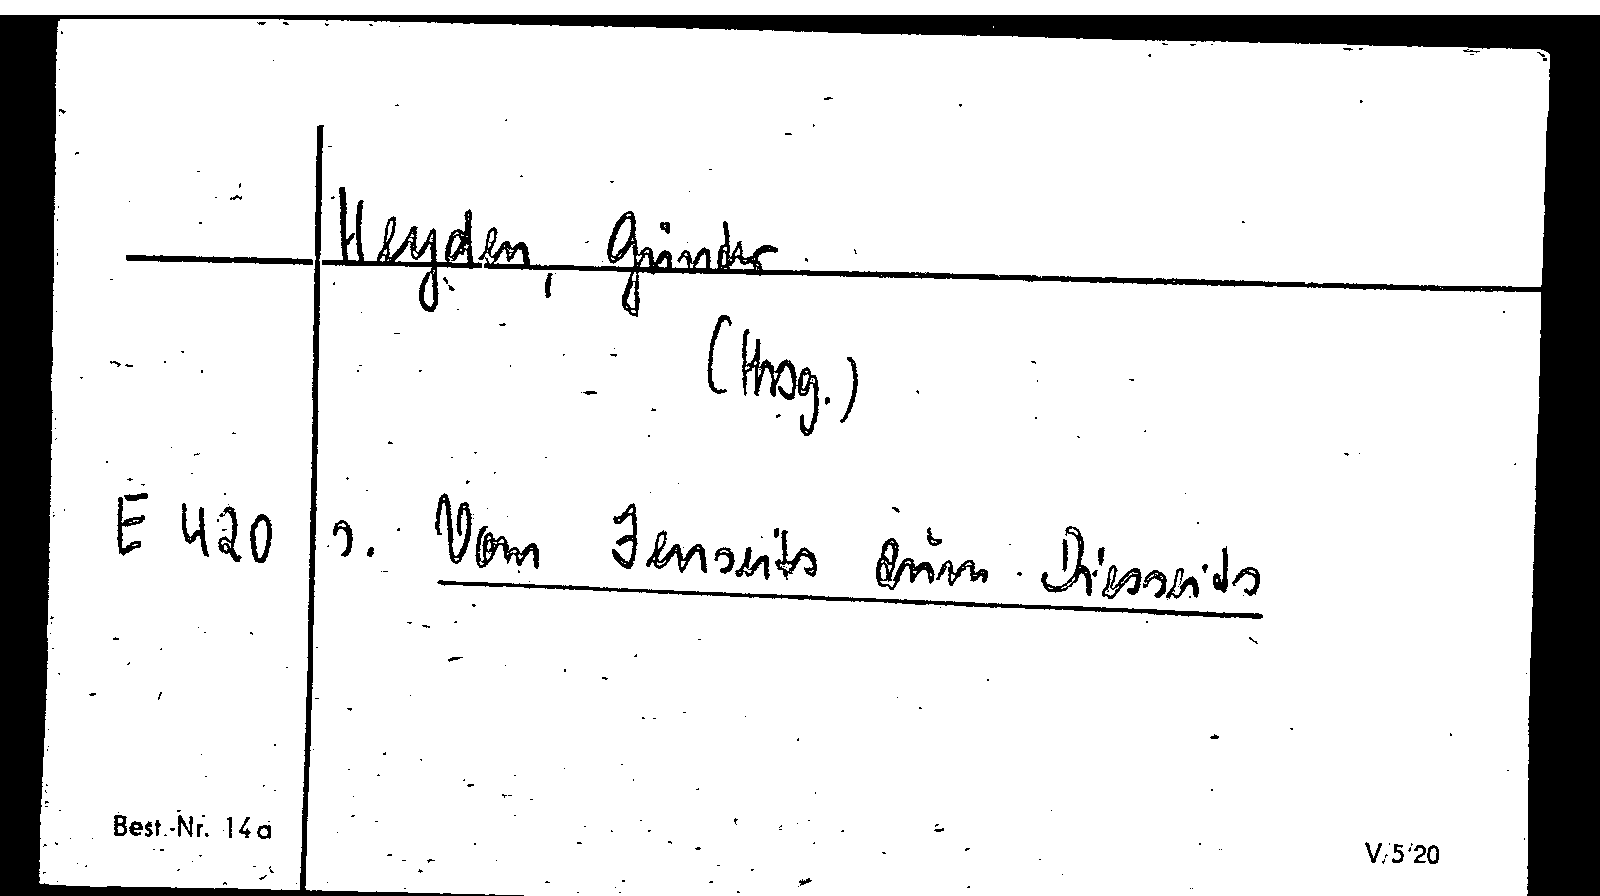 Heyden, Günter
(Hrsg.)
E 420 s. Vom Jenseits zum Diesseits
Best.-Nr. 14a
V/5/20